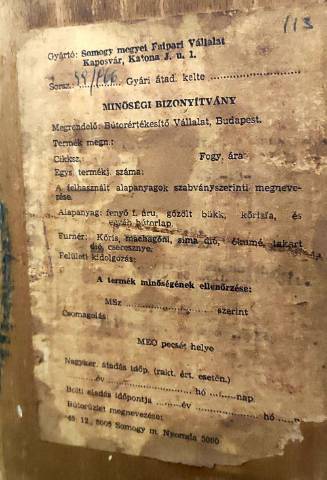 113
Gyártó: Somogy megyei Faipari Vállalat
Kaposvár, Katona J. u. 1.
Sorsz.: Gyári átad. kelte
MINŐSÉGI BIZONYÍTVÁNY
Megrendelő: Bútorértékesítő Vállalat, Budapest.
Termék megn.:
Cikksz. Fogy. ára
Egys. termékj. száma:
A felhasznált alapanyagok szabványszerinti megneve-
zése.
Alapanyag: fenyő f. áru, gőzölt bükk, kőrisfa, és
egyéb bútorlap.
Furnér: Kőris, machagóni, sima dió, okumé, takart
dió, cseresznye.
Felületi kidolgozás:
A termék minőségének ellenőrzése:
MSz szerint
Csomagolás
MEO pecsét helye
Nagyker. átadás időp. (rakt. ért. esetén.)
év hó nap
Bolti eladás időpontja év hó n
Bútorüzlet megnevezése:
12, 5005 Somogy m. Nyomda 5000